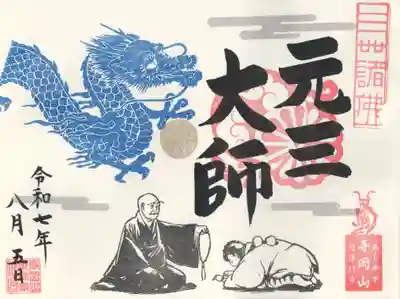 三世諸佛
元三
大師
令和七年
八月五日
寺岡山